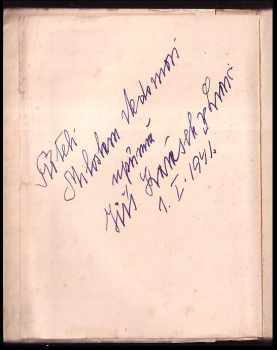 Příteli
Miloslavu Nedomovi
upřímně
Jiří Karásek ze Lvovic
1. I. 1941.